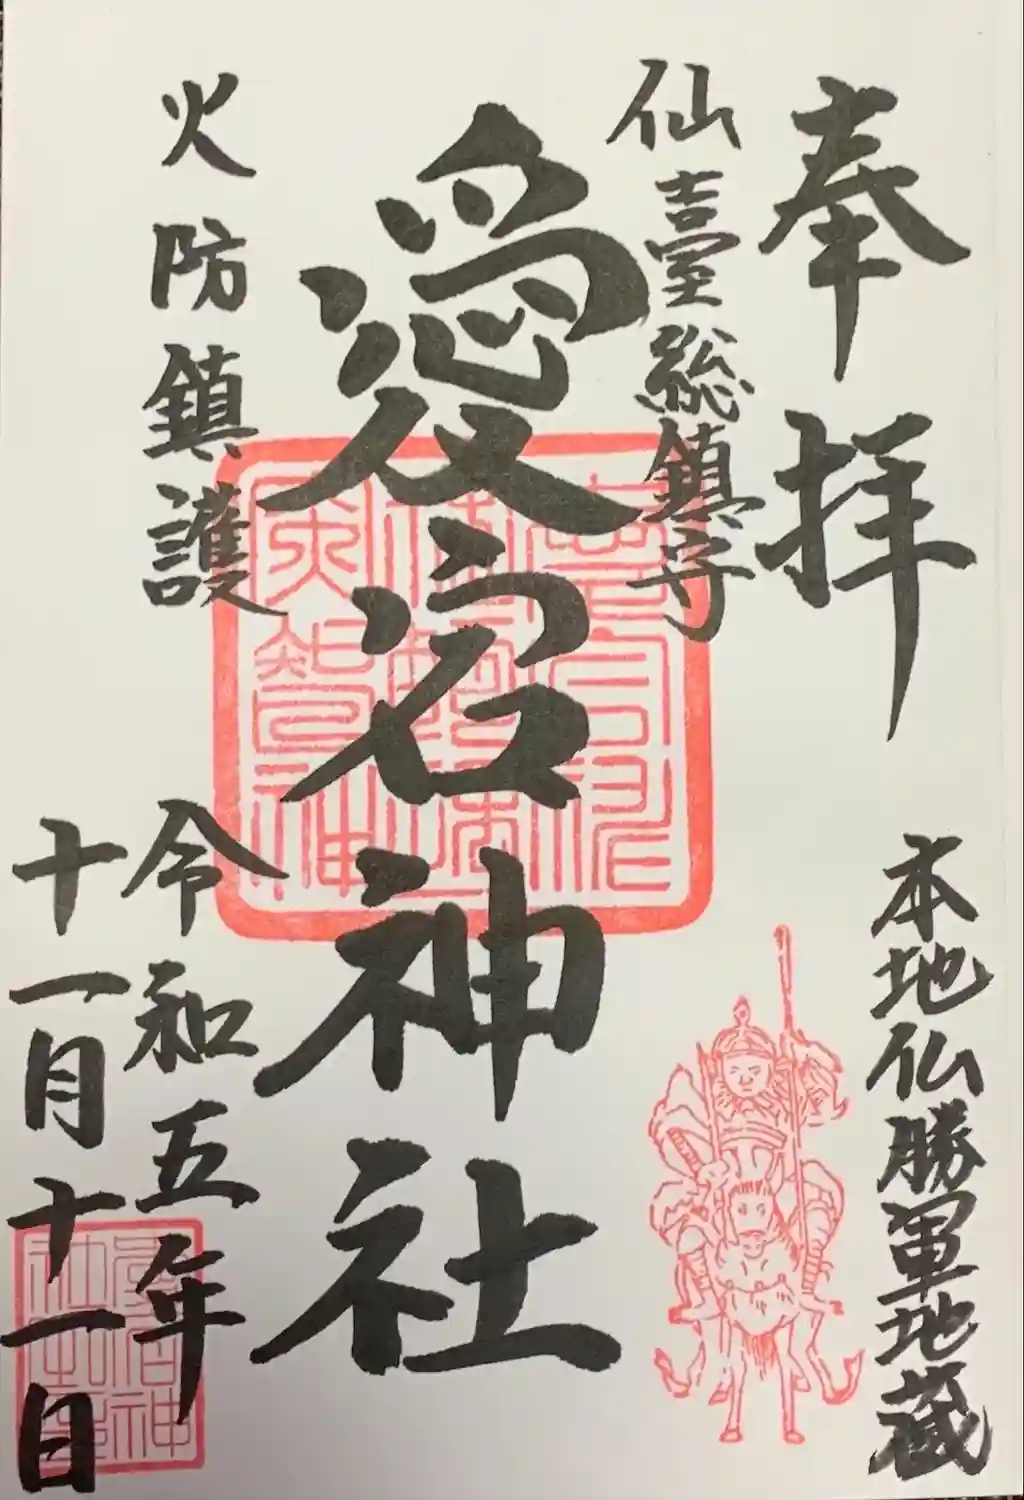 奉拝
本地仏勝軍地蔵
仙臺総鎮守
愛宕神社
火防鎮護
令和五年
十一月十一日